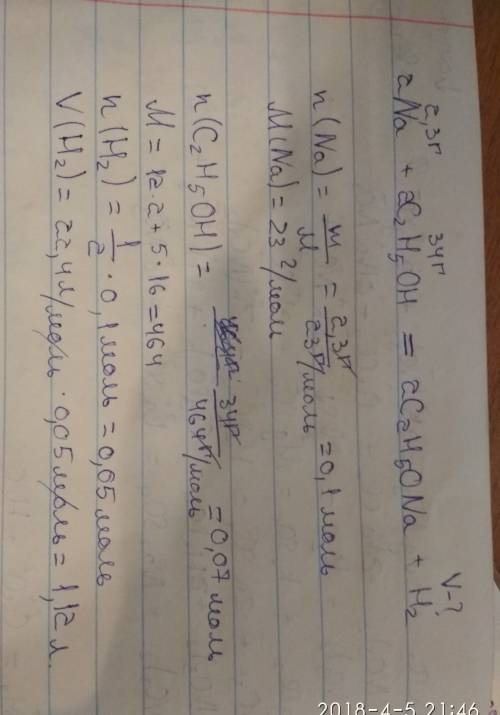 V-?
2,3г 34г
2Na + 2C₂H₅OH = 2C₂H₅ONa + H₂
n(Na) = m/M = 2,3г/23г/моль = 0,1 моль
M(Na) = 23 г/моль
n(C₂H₅OH) = 34г/464г/моль = 0,07 моль
M = 12·2+5·16=464
n(H₂) = 1/2 · 0,1 моль = 0,05 моль
V(H₂) = 22,4л/моль · 0,05 моль = 1,12 л.
2018-4-5 21:46